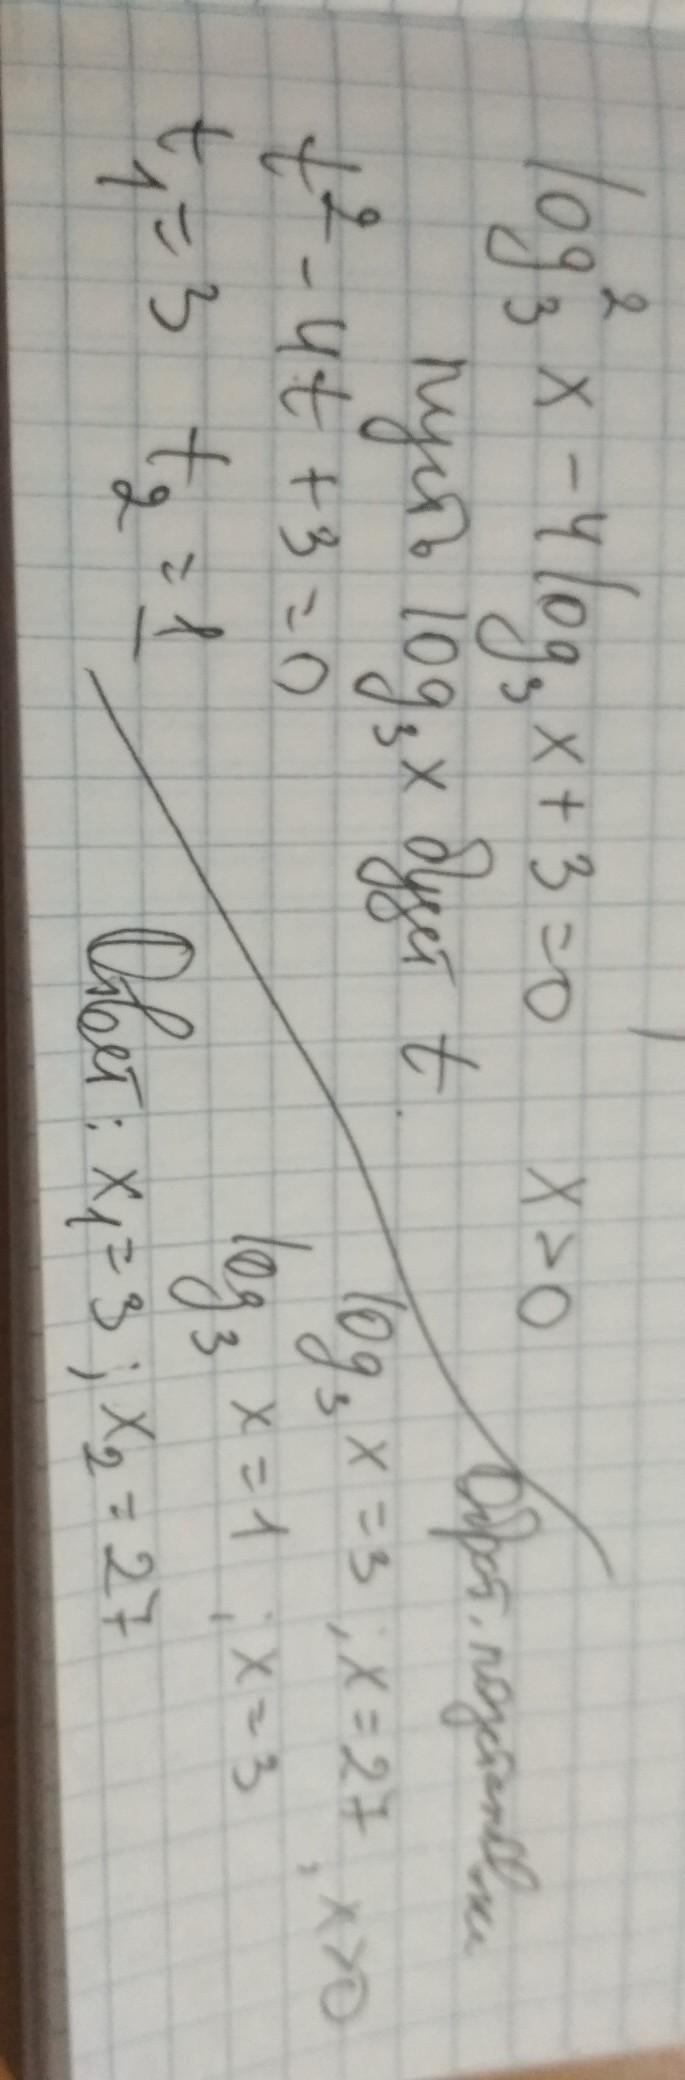 log₃² x - 4 log₃ x + 3 = 0   x > 0
пусть log₃ x будет t.
t² - 4t + 3 = 0
t₁ = 3   t₂ = 1
Обрат. подстановка
log₃ x = 3 ; x = 27 , x > 0
log₃ x = 1 ; x = 3
Ответ: x₁ = 3 ; x₂ = 27